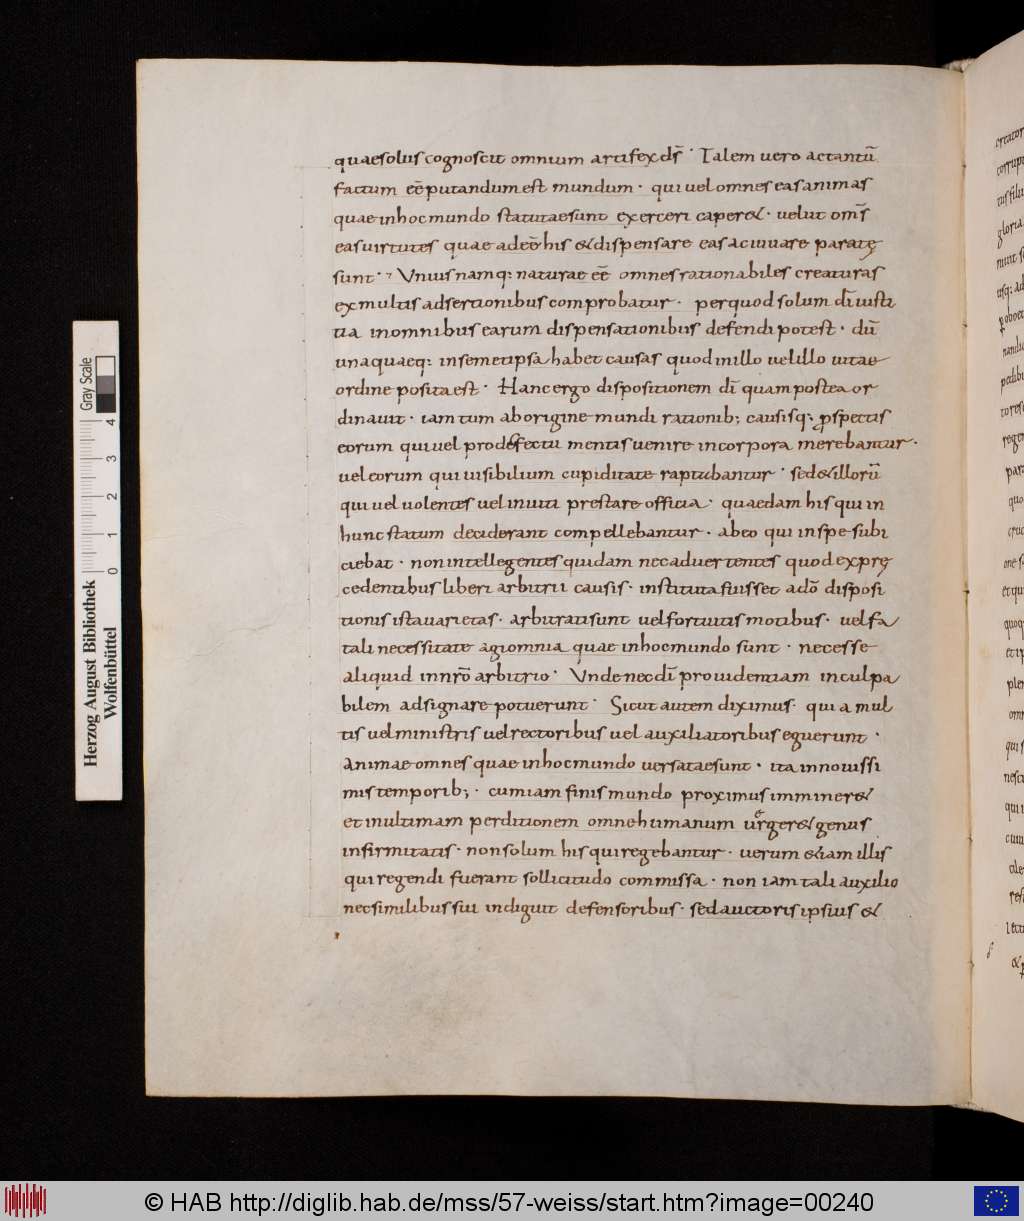 quae solus cognoscit omnium artifex ds̄ · Talem uero ac tantū
factum eē putandum est mundum · qui uel omnes eas animas
quae in hoc mundo statutae sunt exerceri caper& · uelut om̄s
eas uirtutes quae adeē his & dispensare eas ac iuuare paratę
sunt · Vnius namq: naturae eē omnes rationabiles creaturas
ex multis adsertionibus comprobatur · per quod solum dī iusti
tia in omnibus earum dispensationibus defendi potest · dū
una quaeq: in semetipsa habet causas quod in illo uel illo uitae
ordine posita est · Hanc ergo dispositionem dī quam postea or
dinauit · iam tum ab origine mundi rationib; causisq: ꝓspectis
eorum qui uel pro defectu mentis uenire in corpora merebantur ·
uel eorum qui uisibilium cupiditate raptabantur · sed & illorū
qui uel uolentes uel inuiti prestare officia · quaedam his qui in
hunc statum deciderant compellebantur · ab eo qui in spe subi
ciebat · non intellegentes quidam nec aduertentes quod ex prę
cedentibus liberi arbitrii causis · instituta fuisset a dō disposi
tionis ista uarietas · arbitrati sunt uel fortuitis motibus · uel fa
tali necessitate agi omnia quae in hoc mundo sunt · necesse
aliquid in nrō arbitrio · Vnde nec dī prouidentiam inculpa
bilem adsignare potuerunt · Sicut autem diximus · qui a mul
tis uel ministris uel rectoribus uel auxiliatoribus eguerunt ·
animae omnes quae in hoc mundo uersatae sunt · ita in nouissi
mis temporib; · cum iam finis mundo proximus imminer&
et in ultimam perditionem omne humanum urger& genus
infirmitatis · non solum his qui regebantur · uerum &iam illis
qui regendi fuerant sollicitudo commissa · non iam tali auxilio
nec similibus sui indiguit defensoribus · sed auctoris ipsius &
Herzog August Bibliothek
Wolfenbüttel
Gray Scale
0 1 2 3 4
© HAB http://diglib.hab.de/mss/57-weiss/start.htm?image=00240